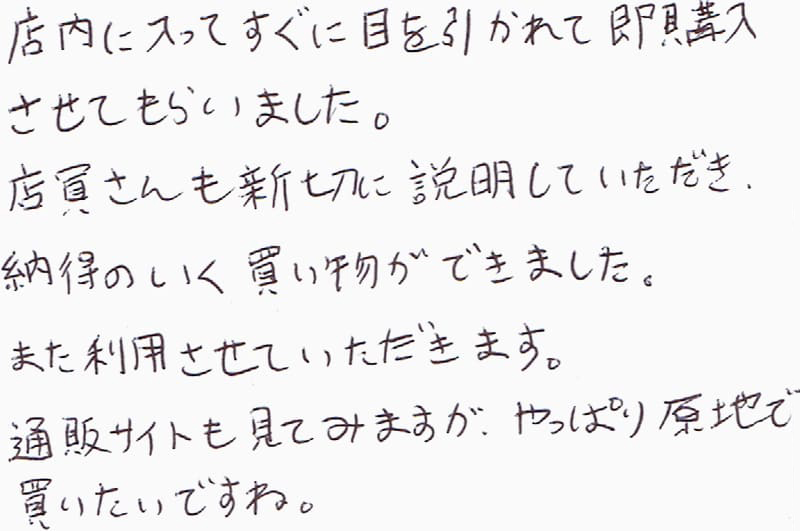 店内に入ってすぐに目を引かれて即購入
させてもらいました。
店員さんも新切に説明していただき、
納得のいく買い物ができました。
また利用させていただきます。
通販サイトも見てみますが、やっぱり原地で
買いたいですね。